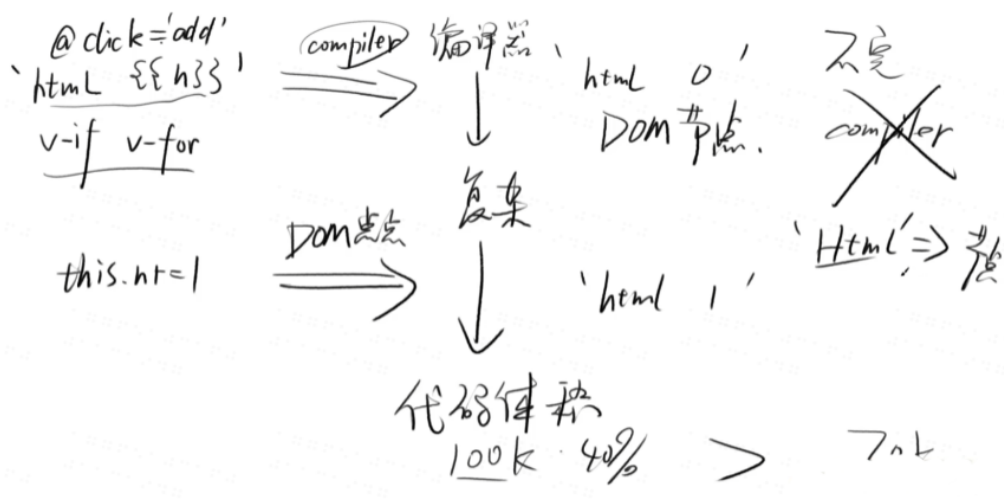 @click='add'
'html {{n}}'
v-if v-for
compiler 编译器
'html 0'
DOM节点.
不完
compiler
复杂
'Html' => 节点
this.n+=1
DOM节点
'html 1'
代码体积
100k 40% >